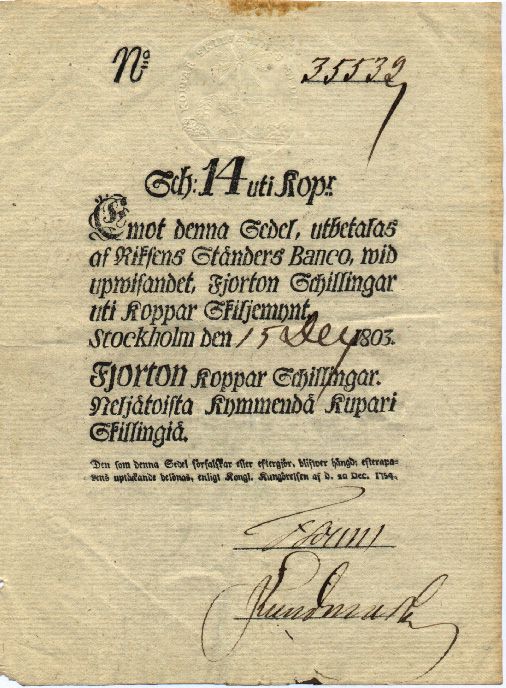 Nº 35539
Sch: 14 uti Kopr
Emot denna Sedel, utbetalas
af Riksens Ständers Banco, wid
upwisandet, Fjorton Schillingar
uti Koppar Skiljemynt.
Stockholm den 15 Dec 1803.
Fjorton Koppar Schillingar.
Neljätoista Kymmendä Kupari
Skillingiä.
Den som denna Sedel förfalskar eller eftergör, blifwer hängd; efterapa-
rens uptäckande belönas, enligt Kongl. Kungörelsen af d. 20 Dec. 1754.